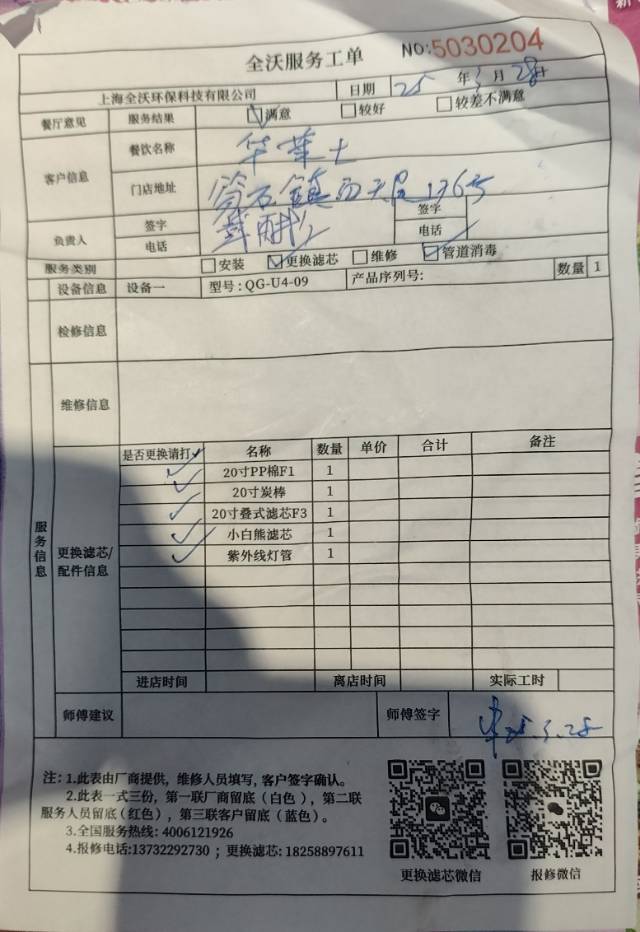 全沃服务工单 NO:5030204
上海全沃环保科技有限公司 日期 25 年 3 月 28日
餐厅意见 服务结果 满意 较好 较差不满意
客户信息 餐饮名称 华莱士
门店地址 镇 176号
负责人 签字 签字
电话 电话
服务类别 安装 更换滤芯 维修 管道消毒
设备信息 设备一 型号:QG-U4-09 产品序列号: 数量 1
检修信息
维修信息
服务信息
更换滤芯/配件信息
是否更换请打✓ 名称 数量 单价 合计 备注
✓ 20寸PP棉F1 1
✓ 20寸炭棒 1
✓ 20寸叠式滤芯F3 1
✓ 小白熊滤芯 1
✓ 紫外线灯管 1
进店时间 离店时间 实际工时
师傅建议 师傅签字 25.3.28
注: 1.此表由厂商提供, 维修人员填写, 客户签字确认。
2.此表一式三份, 第一联厂商留底(白色), 第二联
服务人员留底(红色), 第三联客户留底(蓝色)。
3.全国服务热线: 4006121926
4.报修电话:13732292730 ; 更换滤芯: 18258897611
更换滤芯微信 报修微信